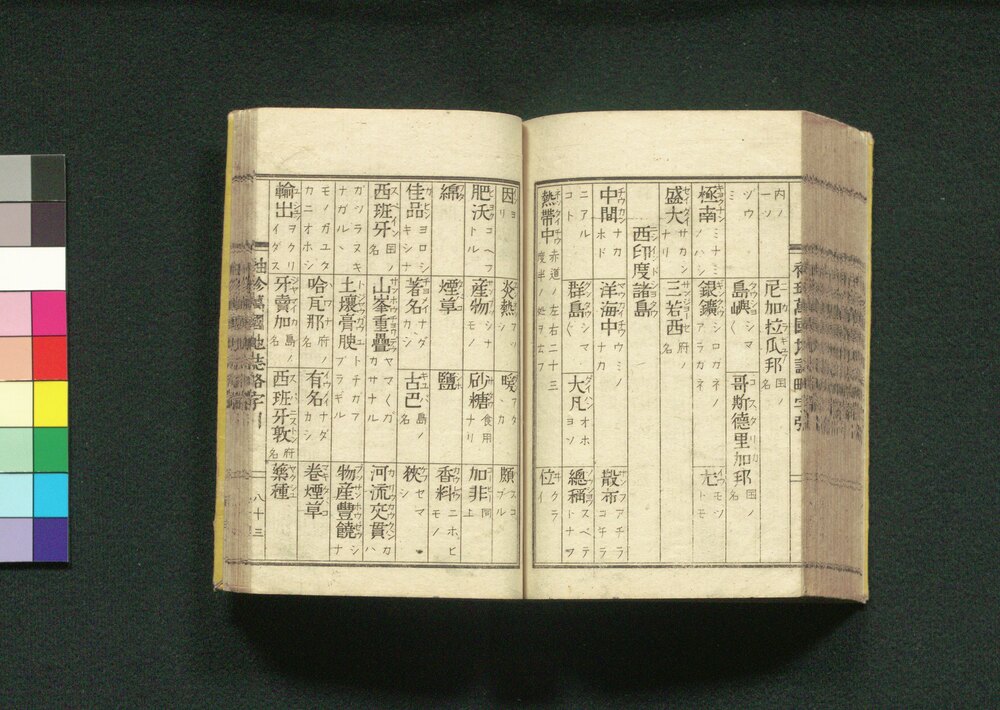 内ノ一ソ
尼加拉瓜邦 国ノ名
ヅウミ
島嶼 シマ〱
哥斯德里加邦 国ノ名
極南 ミナミノハシ
銀鑛 シロガネノアカガネ
尤 トモ
盛大 サカンナリ
三若西 府ノ名
西印度諸島
中間 ナカホド
洋海中 ウミノナカ
散布 アチラコチラ
ニアルコト
群島
大凡 オホヨソ
總稱 スベテトナヲ
熱帶中 赤道ノ左右二十三度半ノ処ヲ云フ
位 クライ
因 ヨリ
炎熱 アツシ
暖 アタヽカ
頗 スコブル
肥沃 コヘフトル
産物 サンシナモノ
砂糖 食用ナリ
加非 同上
綿
煙草
鹽
香料 ニホヒモノ
佳品 ヨロシキシナ
著名 ナダカシ
古巴 島ノ名
狹 セマシ
西班牙 国ノ名
山峯重疊 ヤマ〱ガカサナル
河流交貫 カハ
ガツラヌキナガルヽ
土壤膏腴 ツチガアブラギル
物産豐饒 シナ
モノガユタカニオホシ
哈瓦那 府ノ名
有名 ナダカシ
卷煙草
輸出 オクリイダス
牙賣加 島ノ名
西班牙敦 府ノ名
藥種
袖珍萬國地誌略字引
八十三
袖珍萬國地誌略字引